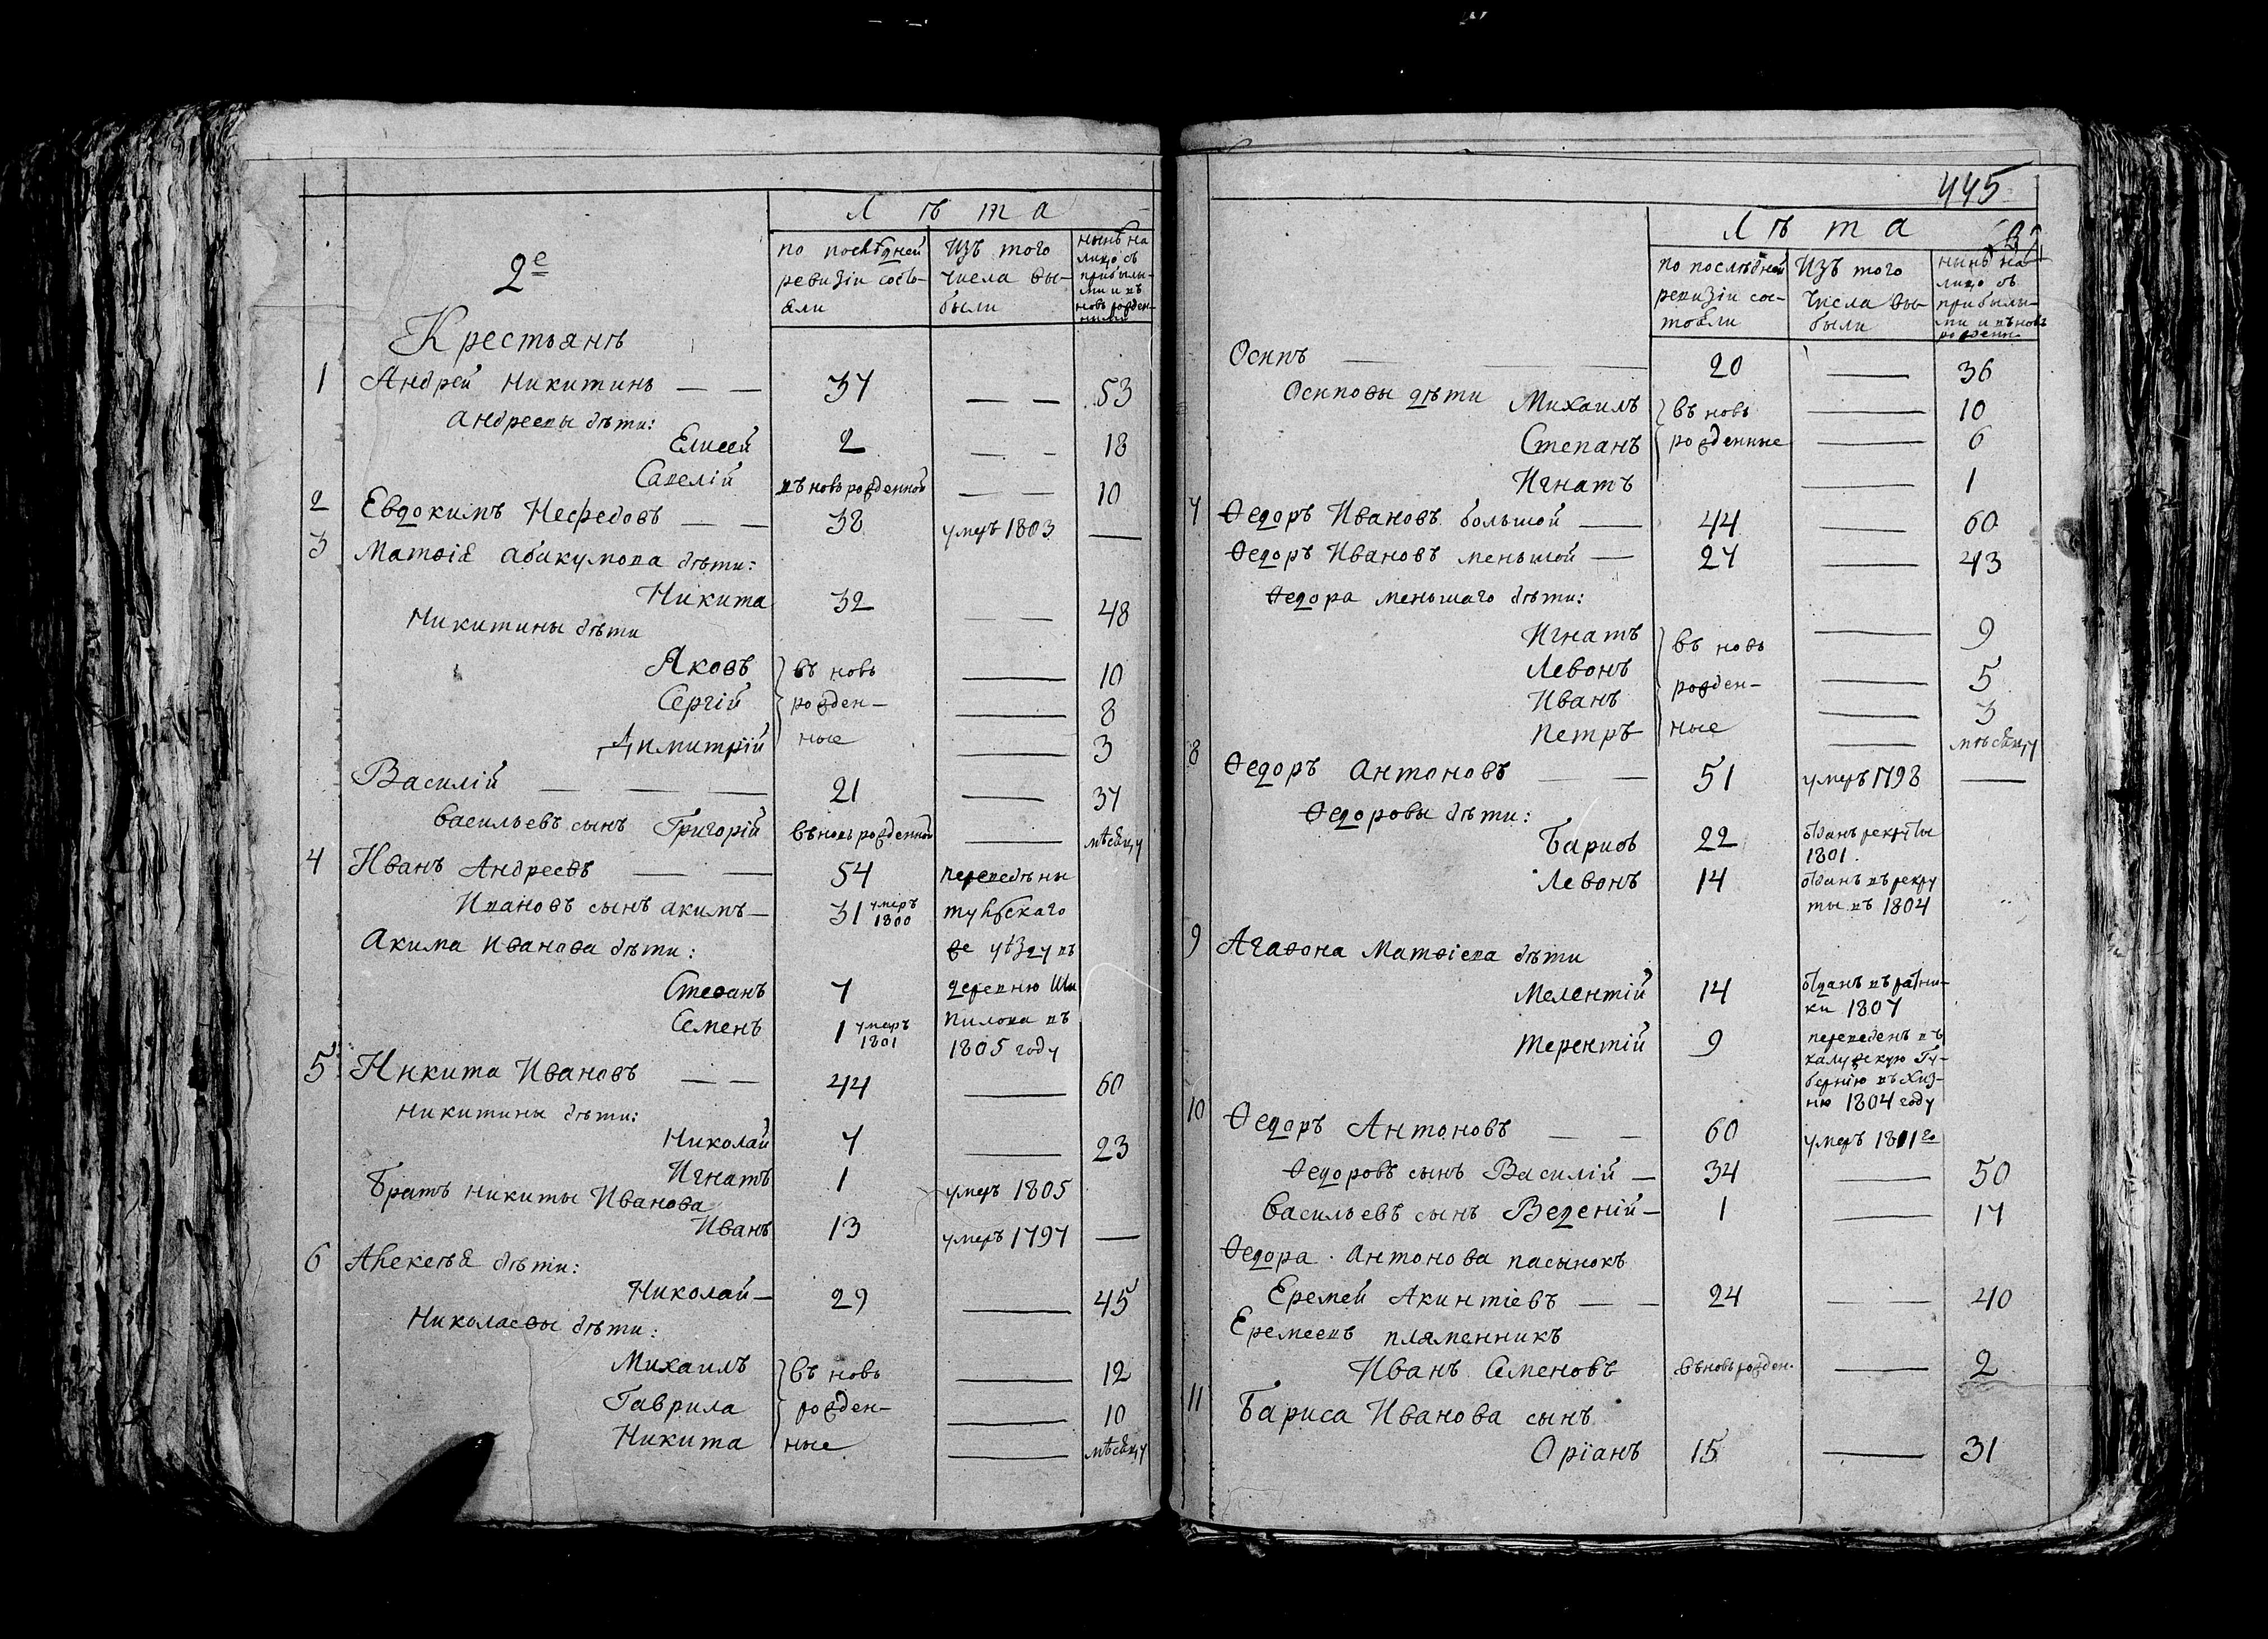 Лѣта
по послѣдней ревизіи состо-
яли
Изъ того числа вы-
были
нынѣ на
лицо съ
прибылы-
ми и въ
новь рожден-
ными
2е
Крестьянъ
1 Андрей Никитинъ — — 37 — — 53
Андреевы дѣти:
Елисей 2 — - 18
Савелій въ новь рожденной — — 10
2 Евдокимъ Несфедовъ — — 38 умеръ 1803 —
3 Матвія Абакумова дѣти:
Никита 32 — — 48
Никитины дѣти
Яковъ въ новь — 10
Сергій рожден- — 8
Димитрій ные — 3
Василій — — — 21 — 37
Васильевъ сынъ Григорій въ новь рожденной — мѣсяцу
4 Иванъ Андреевъ — — 54 переведѣны
Ивановъ сынъ Акимъ — 31 умеръ 1800 тульскаго
Акима Иванова дѣти: же уѣзду въ
Стеѳанъ 7 деревню Ши
Семенъ 1 умеръ 1801 пилова въ
1805 году
5 Никита Ивановъ — — 44 — 60
Никитины дѣти:
Николай 7 — 23
Игнатъ 1 умеръ 1805
Братъ Никиты Иванова
Иванъ 13 умеръ 1797 —
6 Алексѣя дѣти:
Николай — 29 — 45
Николаевы дѣти:
Михаилъ въ новь — 12
Гаврила рожден- — 10
Никита ные — мѣсяцу
445
Лѣта
по послѣдней
ревизіи сос-
тояли
Изъ того
числа вы-
были
нынѣ на
лицо съ
прибылы-
ми и въ новь
рожденн
Осипъ — — — 20 — 36
Осиповы дѣти Михаилъ въ новь — 10
Степанъ рожденные — 6
Игнатъ — 1
7 Ѳедоръ Ивановъ большой — 44 — 60
Ѳедоръ Ивановъ меньшой — 27 — 43
Ѳедора меньшаго дѣти:
Игнатъ въ новь — 9
Левонъ рожден- — 5
Иванъ — 3
Петръ ные — мѣсяцу
8 Ѳедоръ Антоновъ — — 51 умеръ 1798 —
Ѳедоровы дѣти:
Барисъ 22 отданъ рекруты
1801.
Левонъ 14 отданъ въ рекру
ты въ 1804
9 Агаѳона Матѳіева дѣти
Мелентій 14 отданъ въ ратни-
ки 1807
Терентій 9 переведенъ въ
калужскую Гу-
бернію въ Хиз-
ню 1804 году
10 Ѳедоръ Антоновъ — — 60 умеръ 1811го
Ѳедоровъ сынъ Василій — 34 — 50
Васильевъ сынъ Веденій — 1 — 17
Ѳедора Антонова пасынокъ
Еремей Акинтіевъ — — 24 — — 40
Еремеевъ пляменникъ
Иванъ Семеновъ въ новь рожден. — 2
11 Бариса Иванова сынъ
Оріанъ 15 — 31